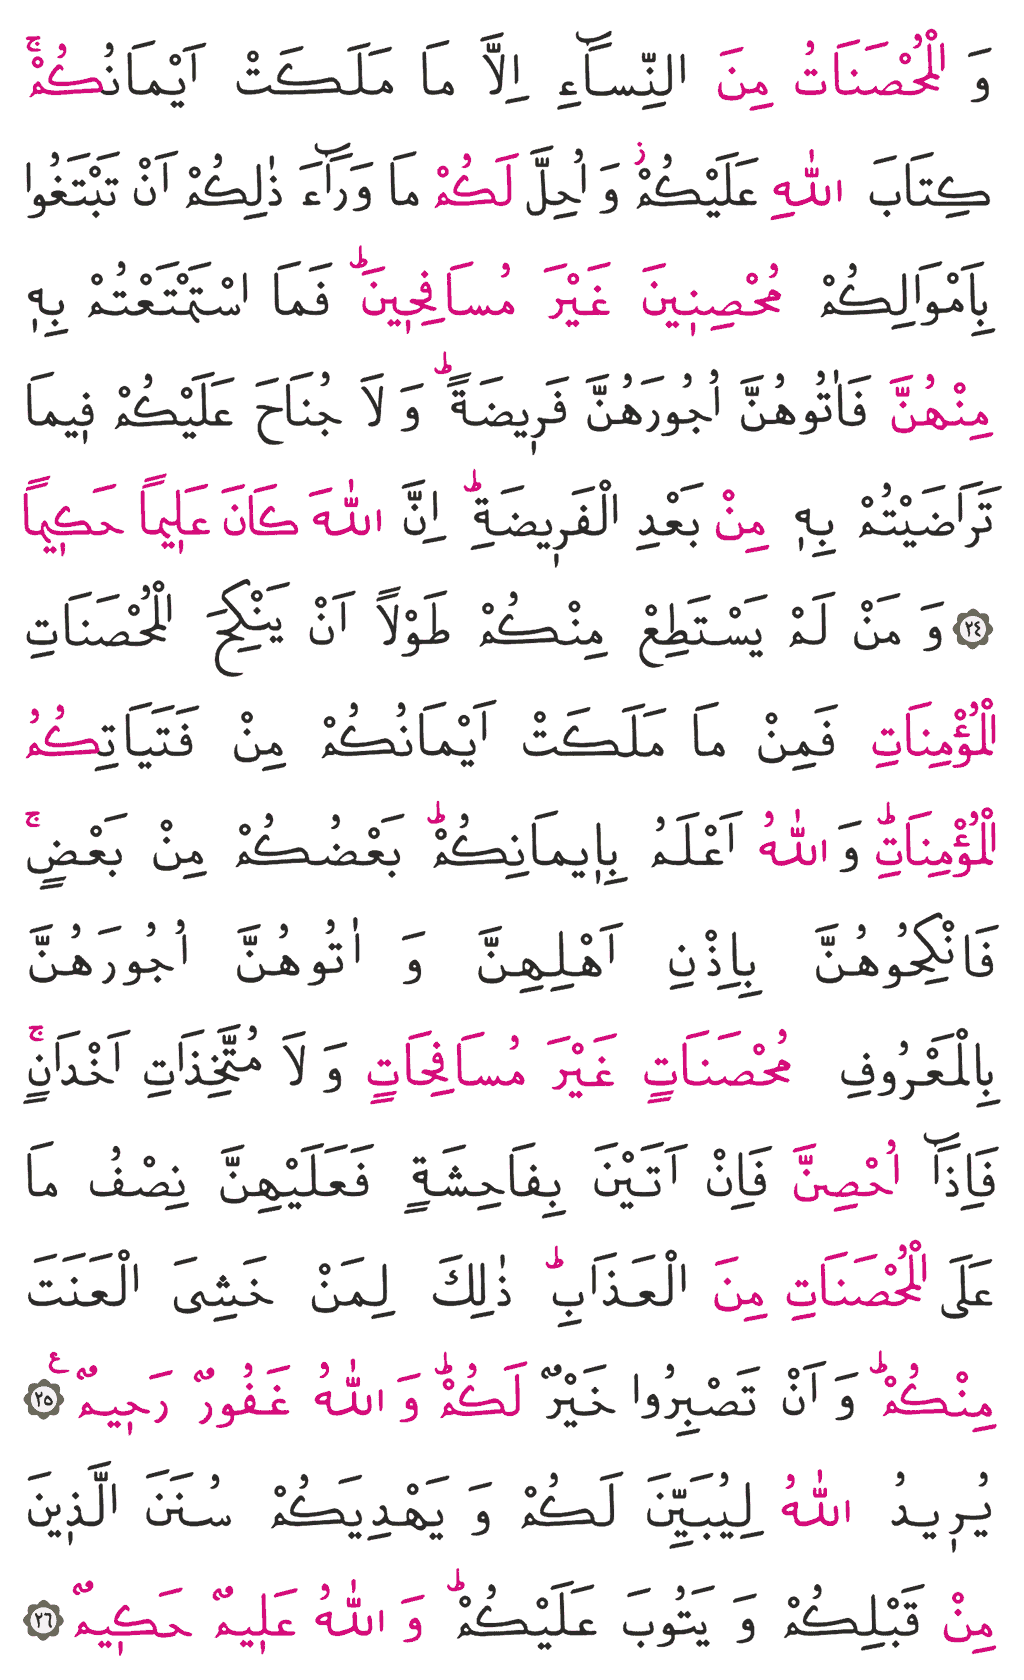 وَ الْمُحْصَنَاتُ مِنَ النِّسَٓاءِ اِلَّا مَا مَلَكَتْ اَيْمَانُكُمْۚ
كِتَابَ اللّٰهِ عَلَيْكُمْۘ وَ اُحِلَّ لَكُمْ مَا وَرَٓاءَ ذٰلِكُمْ اَنْ تَبْتَغُوا
بِاَمْوَالِكُمْ مُحْصِنٖينَ غَيْرَ مُسَافِحٖينَؕ فَمَا اسْتَمْتَعْتُمْ بِهٖ
مِنْهُنَّ فَاٰتُوهُنَّ اُجُورَهُنَّ فَرٖيضَةًؕ وَ لَا جُنَاحَ عَلَيْكُمْ فٖيمَا
تَرَاضَيْتُمْ بِهٖ مِنْ بَعْدِ الْفَرٖيضَةِؕ اِنَّ اللّٰهَ كَانَ عَلٖيماً حَكٖيماً
٢٤ وَ مَنْ لَمْ يَسْتَطِعْ مِنْكُمْ طَوْلاً اَنْ يَنْكِحَ الْمُحْصَنَاتِ
الْمُؤْمِنَاتِ فَمِنْ مَا مَلَكَتْ اَيْمَانُكُمْ مِنْ فَتَيَاتِكُمُ
الْمُؤْمِنَاتِؕ وَ اللّٰهُ اَعْلَمُ بِاٖيمَانِكُمْؕ بَعْضُكُمْ مِنْ بَعْضٍۚ
فَانْكِحُوهُنَّ بِاِذْنِ اَهْلِهِنَّ وَ اٰتُوهُنَّ اُجُورَهُنَّ
بِالْمَعْرُوفِ مُحْصَنَاتٍ غَيْرَ مُسَافِحَاتٍ وَ لَا مُتَّخِذَاتِ اَخْدَانٍۚ
فَاِذَٓا اُحْصِنَّ فَاِنْ اَتَيْنَ بِفَاحِشَةٍ فَعَلَيْهِنَّ نِصْفُ مَا
عَلَى الْمُحْصَنَاتِ مِنَ الْعَذَابِؕ ذٰلِكَ لِمَنْ خَشِىَ الْعَنَتَ
مِنْكُمْؕ وَ اَنْ تَصْبِرُوا خَيْرٌ لَكُمْؕ وَ اللّٰهُ غَفُورٌ رَحٖيمٌ ع ٢٥
يُرٖيدُ اللّٰهُ لِيُبَيِّنَ لَكُمْ وَ يَهْدِيَكُمْ سُنَنَ الَّذٖينَ
مِنْ قَبْلِكُمْ وَ يَتُوبَ عَلَيْكُمْؕ وَ اللّٰهُ عَلٖيمٌ حَكٖيمٌ ٢٦